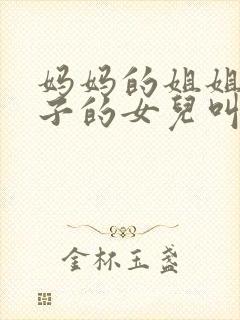 妈妈的姐姐
子的女兒叫
金杯玉盏